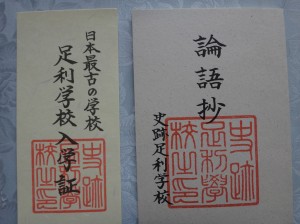 日本最古の学校
足利学校入学証
論語抄
史跡足利学校
史跡
足利學
校之印
史跡
足利學
校之印